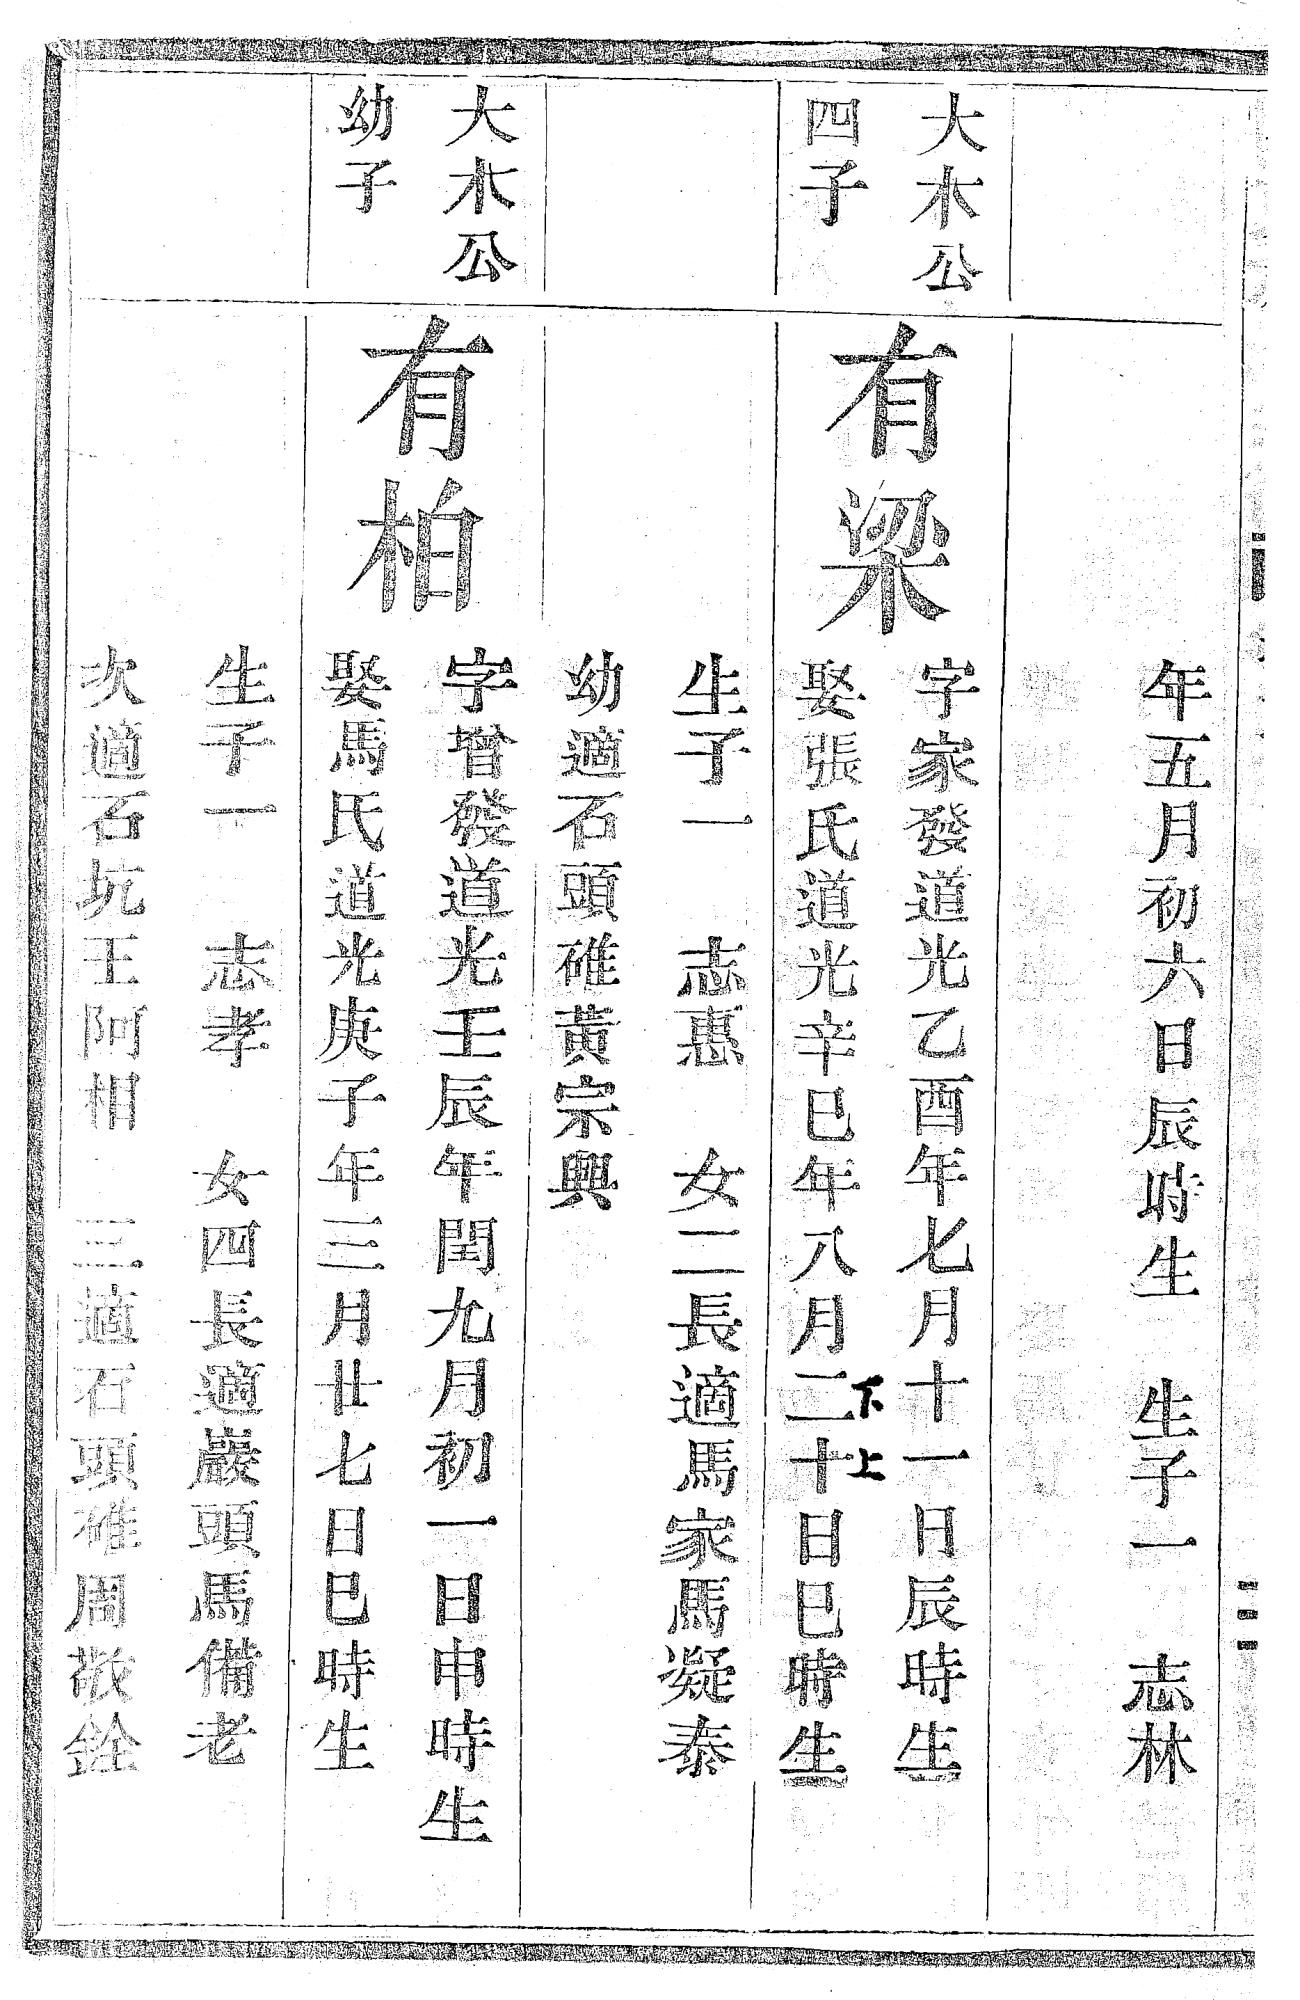 年五月初六日辰時生　生子一　志林
大木公
四子
有梁
字家發道光乙酉年七月十一日辰時生
娶張氏道光辛巳年八月二十日巳時生
下上
生子一　志惠　女二長適馬家馬凝泰
幼適石頭碓黃宗興
大木公
幼子
有柏
字增發道光壬辰年閏九月初一日申時生
娶馬氏道光庚子年三月廿七日巳時生
生子一　志孝　女四長適巖頭馬備老
次適石坑王阿相　三適石頭碓周敬銓